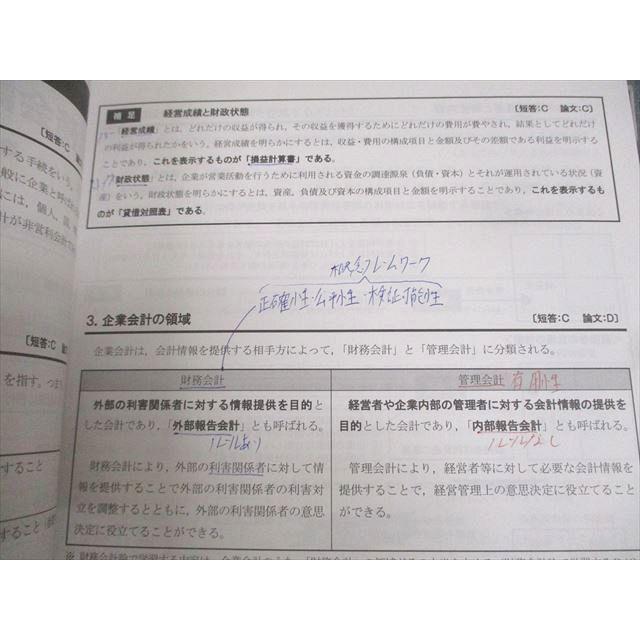 補足 経営成績と財政状態 〔短答:C 論文:C〕
「経営成績」とは、どれだけの収益が得られ、その収益を獲得するためにどれだけの費用が費やされ、結果としてどれだけ
の利益が得られたかをいう。経営成績を明らかにするとは、収益・費用の構成項目と金額及びその差額である利益を明示する
ことであり、これを表示するものが「損益計算書」である。
「財政状態」とは、企業が営業活動を行うために利用される資金の調達源泉（負債・資本）とそれが運用されている状況（資
産）をいう。財政状態を明らかにするとは、資産、負債及び資本の構成項目と金額を明示することであり、これを表示するも
のが「貸借対照表」である。
概念フレームワーク
正確性・公平性・検証可能性
3. 企業会計の領域 〔短答:C 論文:D〕
企業会計は、会計情報を提供する相手方によって、「財務会計」と「管理会計」に分類される。
財務会計
外部の利害関係者に対する情報提供を目的と
した会計であり、「外部報告会計」とも呼ばれる。
ルールあり
財務会計により、外部の利害関係者に対して情
報を提供することで外部の利害関係者の利害対
立を調整するとともに、外部の利害関係者の意思
決定に役立てることができる。
管理会計 有用性
経営者や企業内部の管理者に対する会計情報の提供を
目的とした会計であり、「内部報告会計」とも呼ばれる。
ルールなし
管理会計により、経営者等に対して必要な会計情報を
提供することで、経営管理上の意思決定に役立てること
ができる。
〔短答:C
する手続をいう。
般に企業と呼ばれ
には、個人、国
計が非営利会計で
〔短答:C 論
を指す。つまり
すること
すること